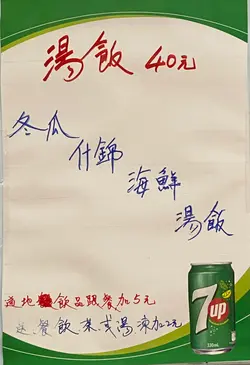 湯飯 40元
冬瓜
什錦
海鮮
湯飯
道地飲品跟餐加5元
送餐飲茶或湯 凍加2元
7up
330mL